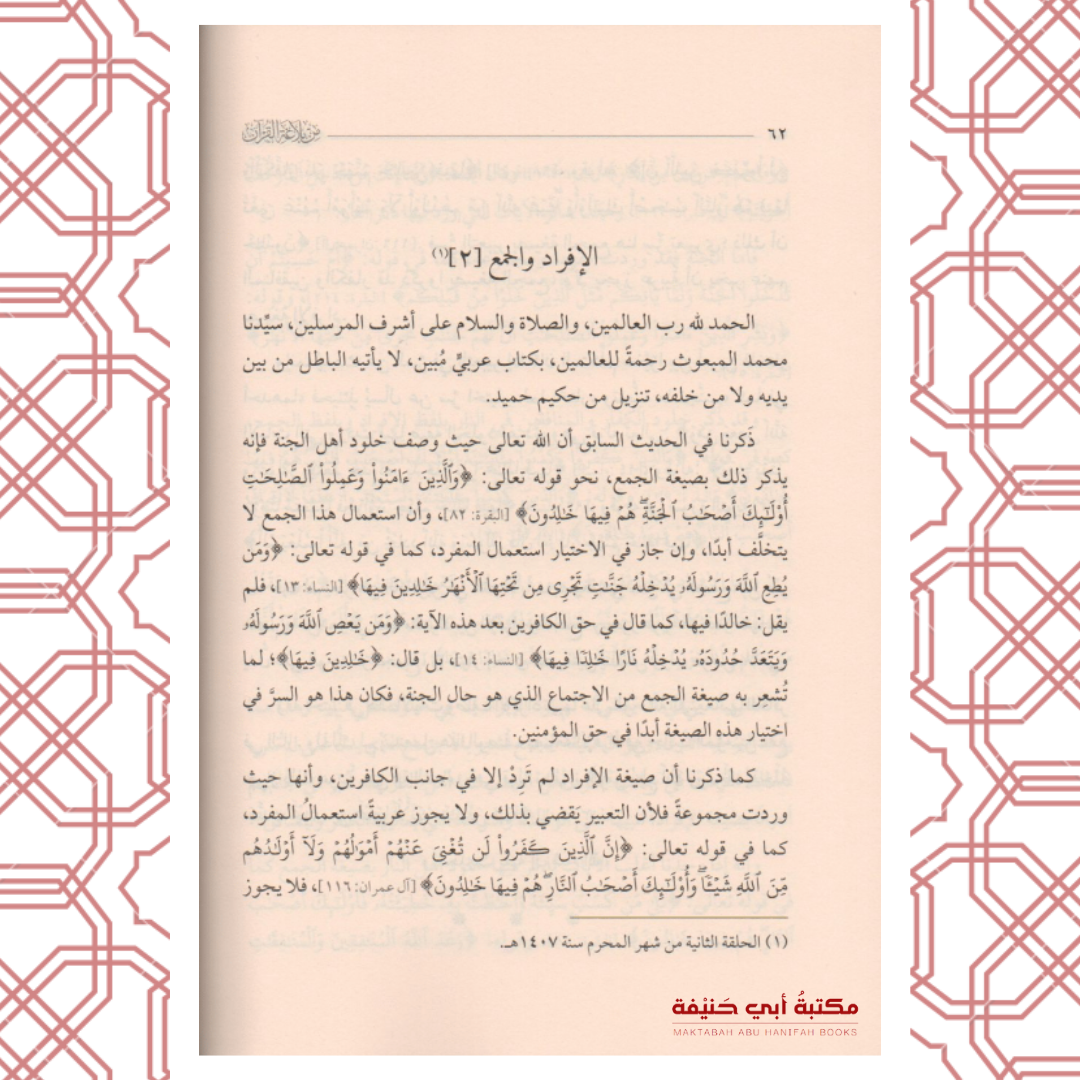 ٦٢ من بلاغة القرآن
الإفراد والجمع [٢](١)
الحمد لله رب العالمين، والصلاة والسلام على أشرف المرسلين، سيِّدنا
محمد المبعوث رحمةً للعالمين، بكتاب عربيٍّ مُبين، لا يأتيه الباطل من بين
يديه ولا من خلفه، تنزيل من حكيم حميد.
ذَكرنا في الحديث السابق أن الله تعالى حيث وصف خلود أهل الجنة فإنه
يذكر ذلك بصيغة الجمع، نحو قوله تعالى: ﴿وَٱلَّذِينَ ءَامَنُوا۟ وَعَمِلُوا۟ ٱلصَّٰلِحَٰتِ
أُو۟لَٰٓئِكَ أَصْحَٰبُ ٱلْجَنَّةِ ۖ هُمْ فِيهَا خَٰلِدُونَ﴾ [البقرة: ٨٢]، وأن استعمال هذا الجمع لا
يتخلَّف أبدًا، وإن جاز في الاختيار استعمال المفرد، كما في قوله تعالى: ﴿وَمَن
يُطِعِ ٱللَّهَ وَرَسُولَهُۥ يُدْخِلْهُ جَنَّٰتٍ تَجْرِى مِن تَحْتِهَا ٱلْأَنْهَٰرُ خَٰلِدِينَ فِيهَا﴾ [النساء: ١٣]، فلم
يقل: خالدًا فيها، كما قال في حق الكافرين بعد هذه الآية: ﴿وَمَن يَعْصِ ٱللَّهَ وَرَسُولَهُۥ
وَيَتَعَدَّ حُدُودَهُۥ يُدْخِلْهُ نَارًا خَٰلِدًا فِيهَا﴾ [النساء: ١٤]، بل قال: ﴿خَٰلِدِينَ فِيهَا﴾؛ لما
تُشعر به صيغة الجمع من الاجتماع الذي هو حال الجنة، فكان هذا هو السرَّ في
اختيار هذه الصيغة أبدًا في حق المؤمنين.
كما ذكرنا أن صيغة الإفراد لم تَرِدْ إلا في جانب الكافرين، وأنها حيث
وردت مجموعةً فلأن التعبير يَقضي بذلك، ولا يجوز عربيةً استعمالُ المفرد،
كما في قوله تعالى: ﴿إِنَّ ٱلَّذِينَ كَفَرُوا۟ لَن تُغْنِىَ عَنْهُمْ أَمْوَٰلُهُمْ وَلَآ أَوْلَٰدُهُم
مِّنَ ٱللَّهِ شَيْـًٔا ۖ وَأُو۟لَٰٓئِكَ أَصْحَٰبُ ٱلنَّارِ ۚ هُمْ فِيهَا خَٰلِدُونَ﴾ [آل عمران: ١١٦]، فلا يجوز
(١) الحلقة الثانية من شهر المحرم سنة ١٤٠٧هـ.
مكتبةُ أبي حَنيْفة
MAKTABAH ABU HANIFAH BOOKS